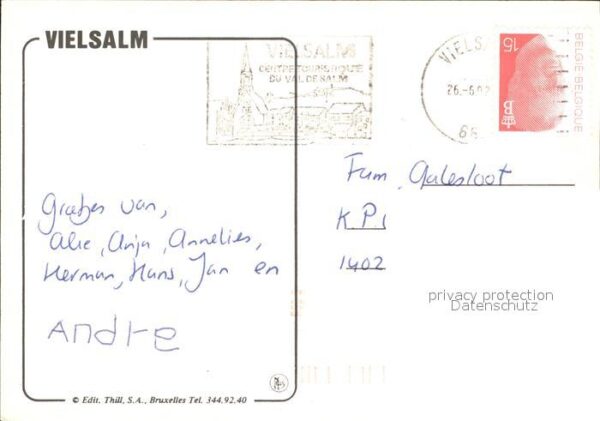 VIELSALM
VIELSALM
CENTRE TOURISTIQUE
DU VAL DE SALM
VIELS
26.-6.92
66
15
B
BELGIE BELGIQUE
Groetjes van,
Alie, Anja, Annelies,
Herman, Hans, Jan en
Andre
Fam. Galesloot
K P
1402
privacy protection
Datenschutz
© Edit. Thill, S.A., Bruxelles Tel. 344.92.40